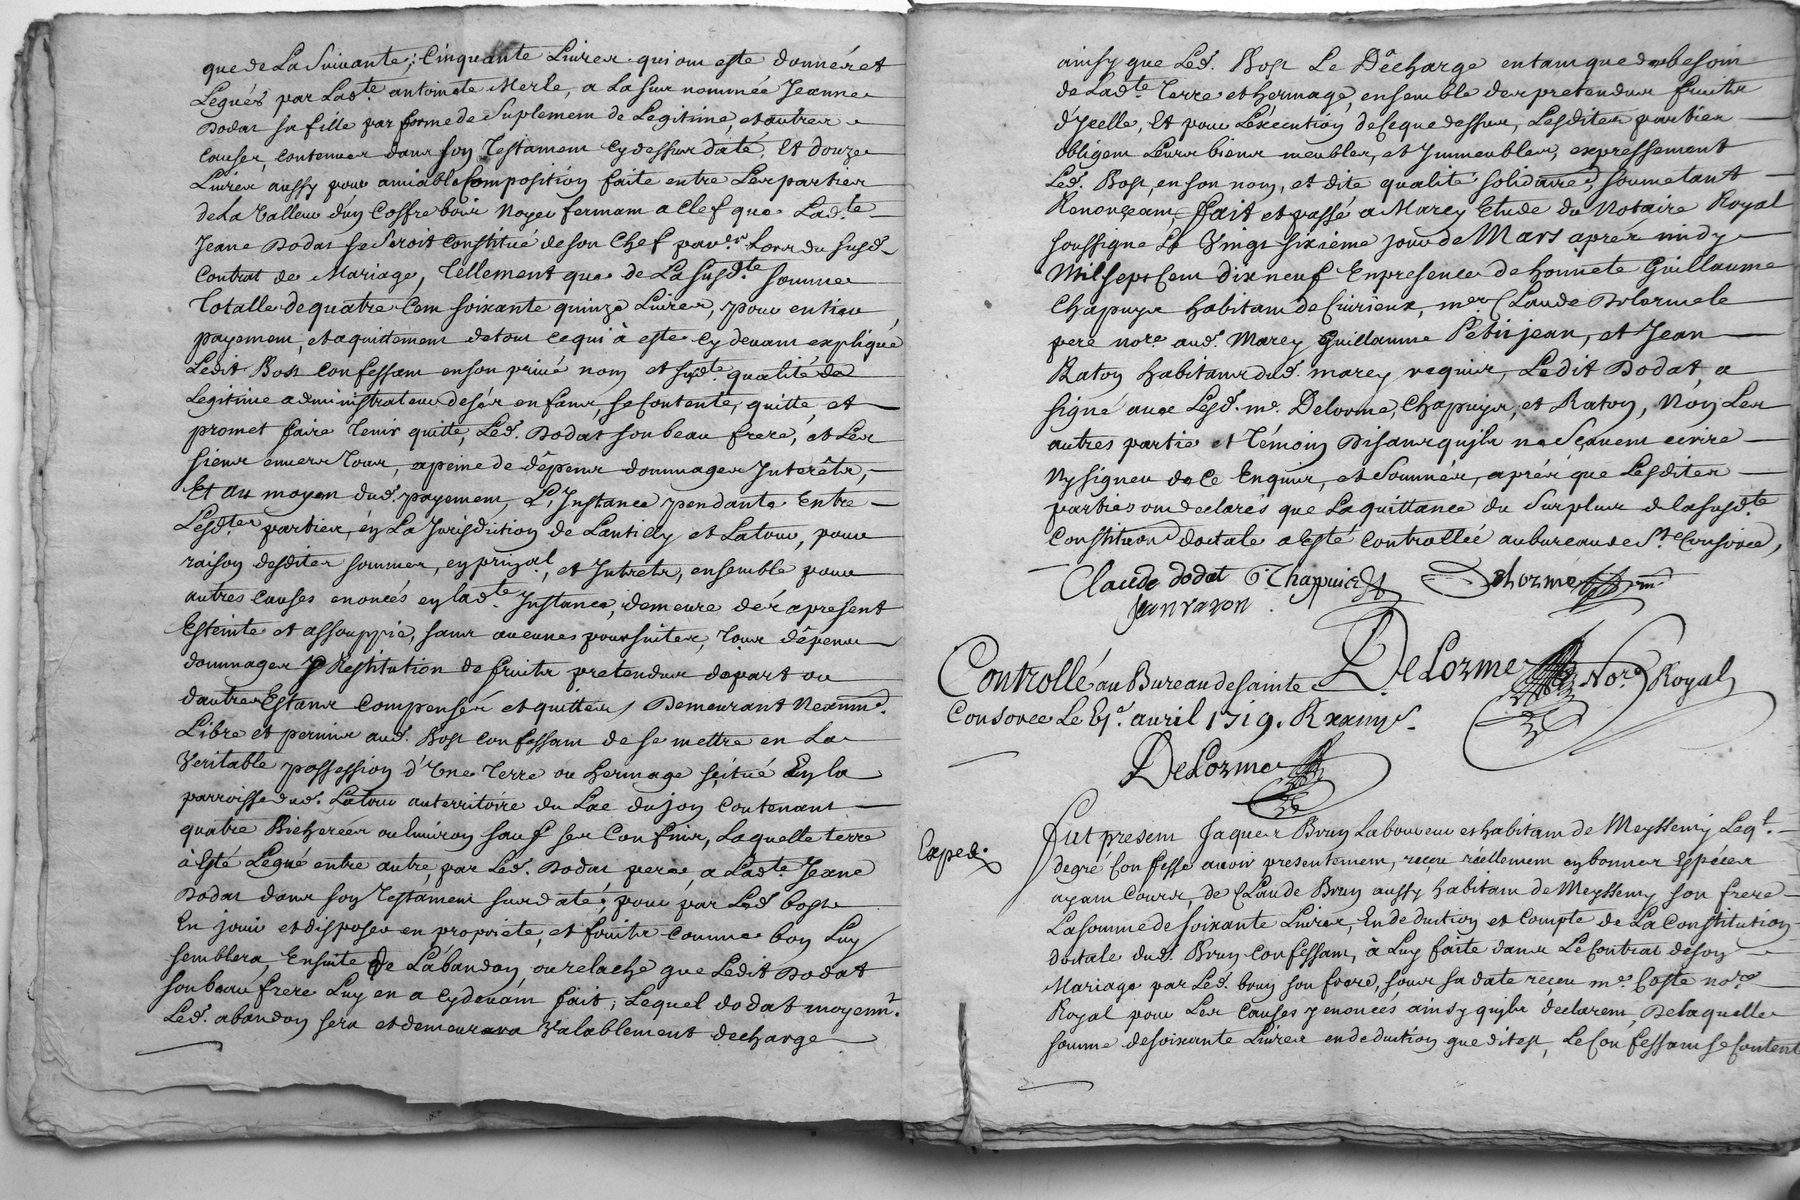 que de La suivante; Cinquante Livres qui ont esté donnéz et
Legués par Lad.te antoinete Merle, a La sus nommée Jeanne
Dodat sa fille par forme de Suplement de Legitime, et autres
causes, contenues dans son Testament cy dessus daté, Et douze
Livres, aussy pour amiable Composition faite entre Les parties
de La valleur d'un Coffre bois Noyer fermant a Clef que Lad.te
Jeane Dodat se Seroit Constitué de son Chef par Lors du susd.
Contrat de Mariage, Tellement que de La susd.te somme
Totalle de quatre Cent soixante quinze Livres, pour entier
payement, et aquittement de tout ce qui à esté Cy devant expliqué
Ledit Bost Confessant en son privé nom et susd.te qualité de
Legitime administrateur de ses enfans, se Contente, quitte, et
promet faire Tenir quitte, Led. Dodat son beau frere, et Les
siens envers tous, a peine de dêpens dommages Interêts,
Et au moyen dud. payement, L'Instance pendante Entre
Lesd.tes parties, en La Jurisdiction de Lantilly et Latour, pour
raison desdites sommes, en prin.al, et Intrets, ensemble pour
autres Causes enoncés en lad.te Instance, demeure dés a present
Esteinte et assouppie, sans aucunes poursuites, Tous dêpens
dommages Restitution de fruits pretendus de part ou
dautre Estans Compensés et quittes, Demeurant Neanm.
Libre et permis aud. Bost Confessant de se mettre en La
Veritable possession d'Une Terre ou hermage scitué En la
parroisse dud. Latour au territoire du Lac du jon Contenant
quatre Bicherées ou Environ sauf ses Confins, Laquelle terre
à Esté Legué entre autre, par Led. Dodat pere, a Lad.te Jeane
Dodat dans son Testament sus daté; pour par Led Bost
En jouir et disposer en propriete, et fruits comme bon Luy
semblera Ensuite De Labandon, ou relache que Ledit Dodat
son beau frere Luy en a cy devant fait; Lequel dodat moyenn.t
Led. abandon sera et demeurera Valablement decharge
ainsy que Led. Bost Le Décharge entant que de besoin
de Lad.te Terre et hermage, ensemble des pretendus fruits
d'Icelle, Et pour L'éxecution de Ce que dessus, Lesdites parties
obligent Leurs biens meubles, et Immeubles, expressement
Led. Bost, en son nom, et dite qualité solidaire, soumetant
Renonçeant, fait et passé a Marcy Etude du Notaire Royal
soussigne Le Vingt sixieme jour de Mars aprés midy
Mil sept Cent dix neuf En presence de honnete Guillaume
Chapuys habitant de Civrieux, m.e Claude Delorme le
pere no.re aud. Marcy Guillaume Petitjean, et Jean
Raton habitans dud. marcy requis, Ledit Dodat, a
signé avec Lesd. m.e Delorme, Chapuys, et Raton, Non Les
autres partie et Témoin Disans qu'ils ne sçavent écrire
Ny signer de Ce Enquis, et sommés, aprés que Lesdites
parties ont declarés que La quittance du Surplus de la susd.te
Constitution doctale a Esté Controllée au bureau de S.te Consorce,
Claude dodat G Chapuis Delorme
jean raton
Delorme No.re Royal
Controllé au Bureau de sainte
Consorce Le avril 1719.
Delorme
Exped.
Fut present Jaques Brun Laboureur et habitant de Meyssemy Leq.l
de gré Confesse avoir presentement, reçeu réellement en bonnes Espéces
ayant Cours, de Claude Brun aussy habitant de Meyssemy son frere
La somme de soixante Livres, En deduction et Compte de La Constitution
doctale dud. Brun Confessant, à Luy faite dans Le Contrat de son
Mariage par Led. brun son frere, sous sa date reçeu m.e Coste no.re
Royal pour Les Causes y enoncés ainsy qu'ils declarent, De laquelle
somme de soixante Livres en deduction que dit est, Le Confessant se Contente